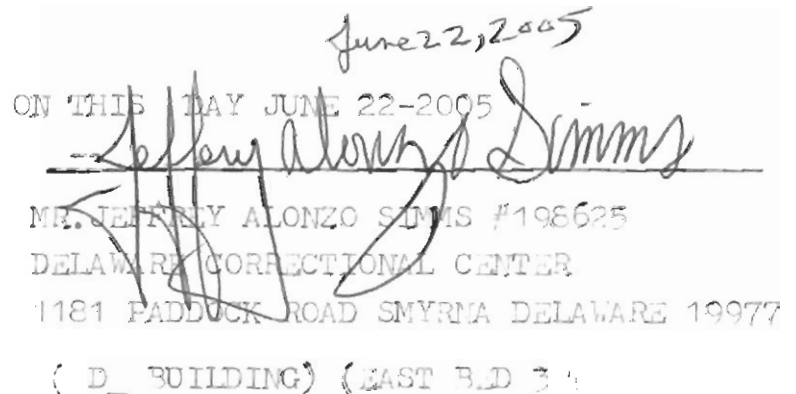 June 22, 2005
ON THIS DAY JUNE 22-2005
Jeffery Alonzo Simms
MR. JEFFREY ALONZO SIMMS #198625
DELAWARE CORRECTIONAL CENTER
1181 PADDOCK ROAD SMYRNA DELAWARE 19977
( D_ BUILDING) (EAST BED